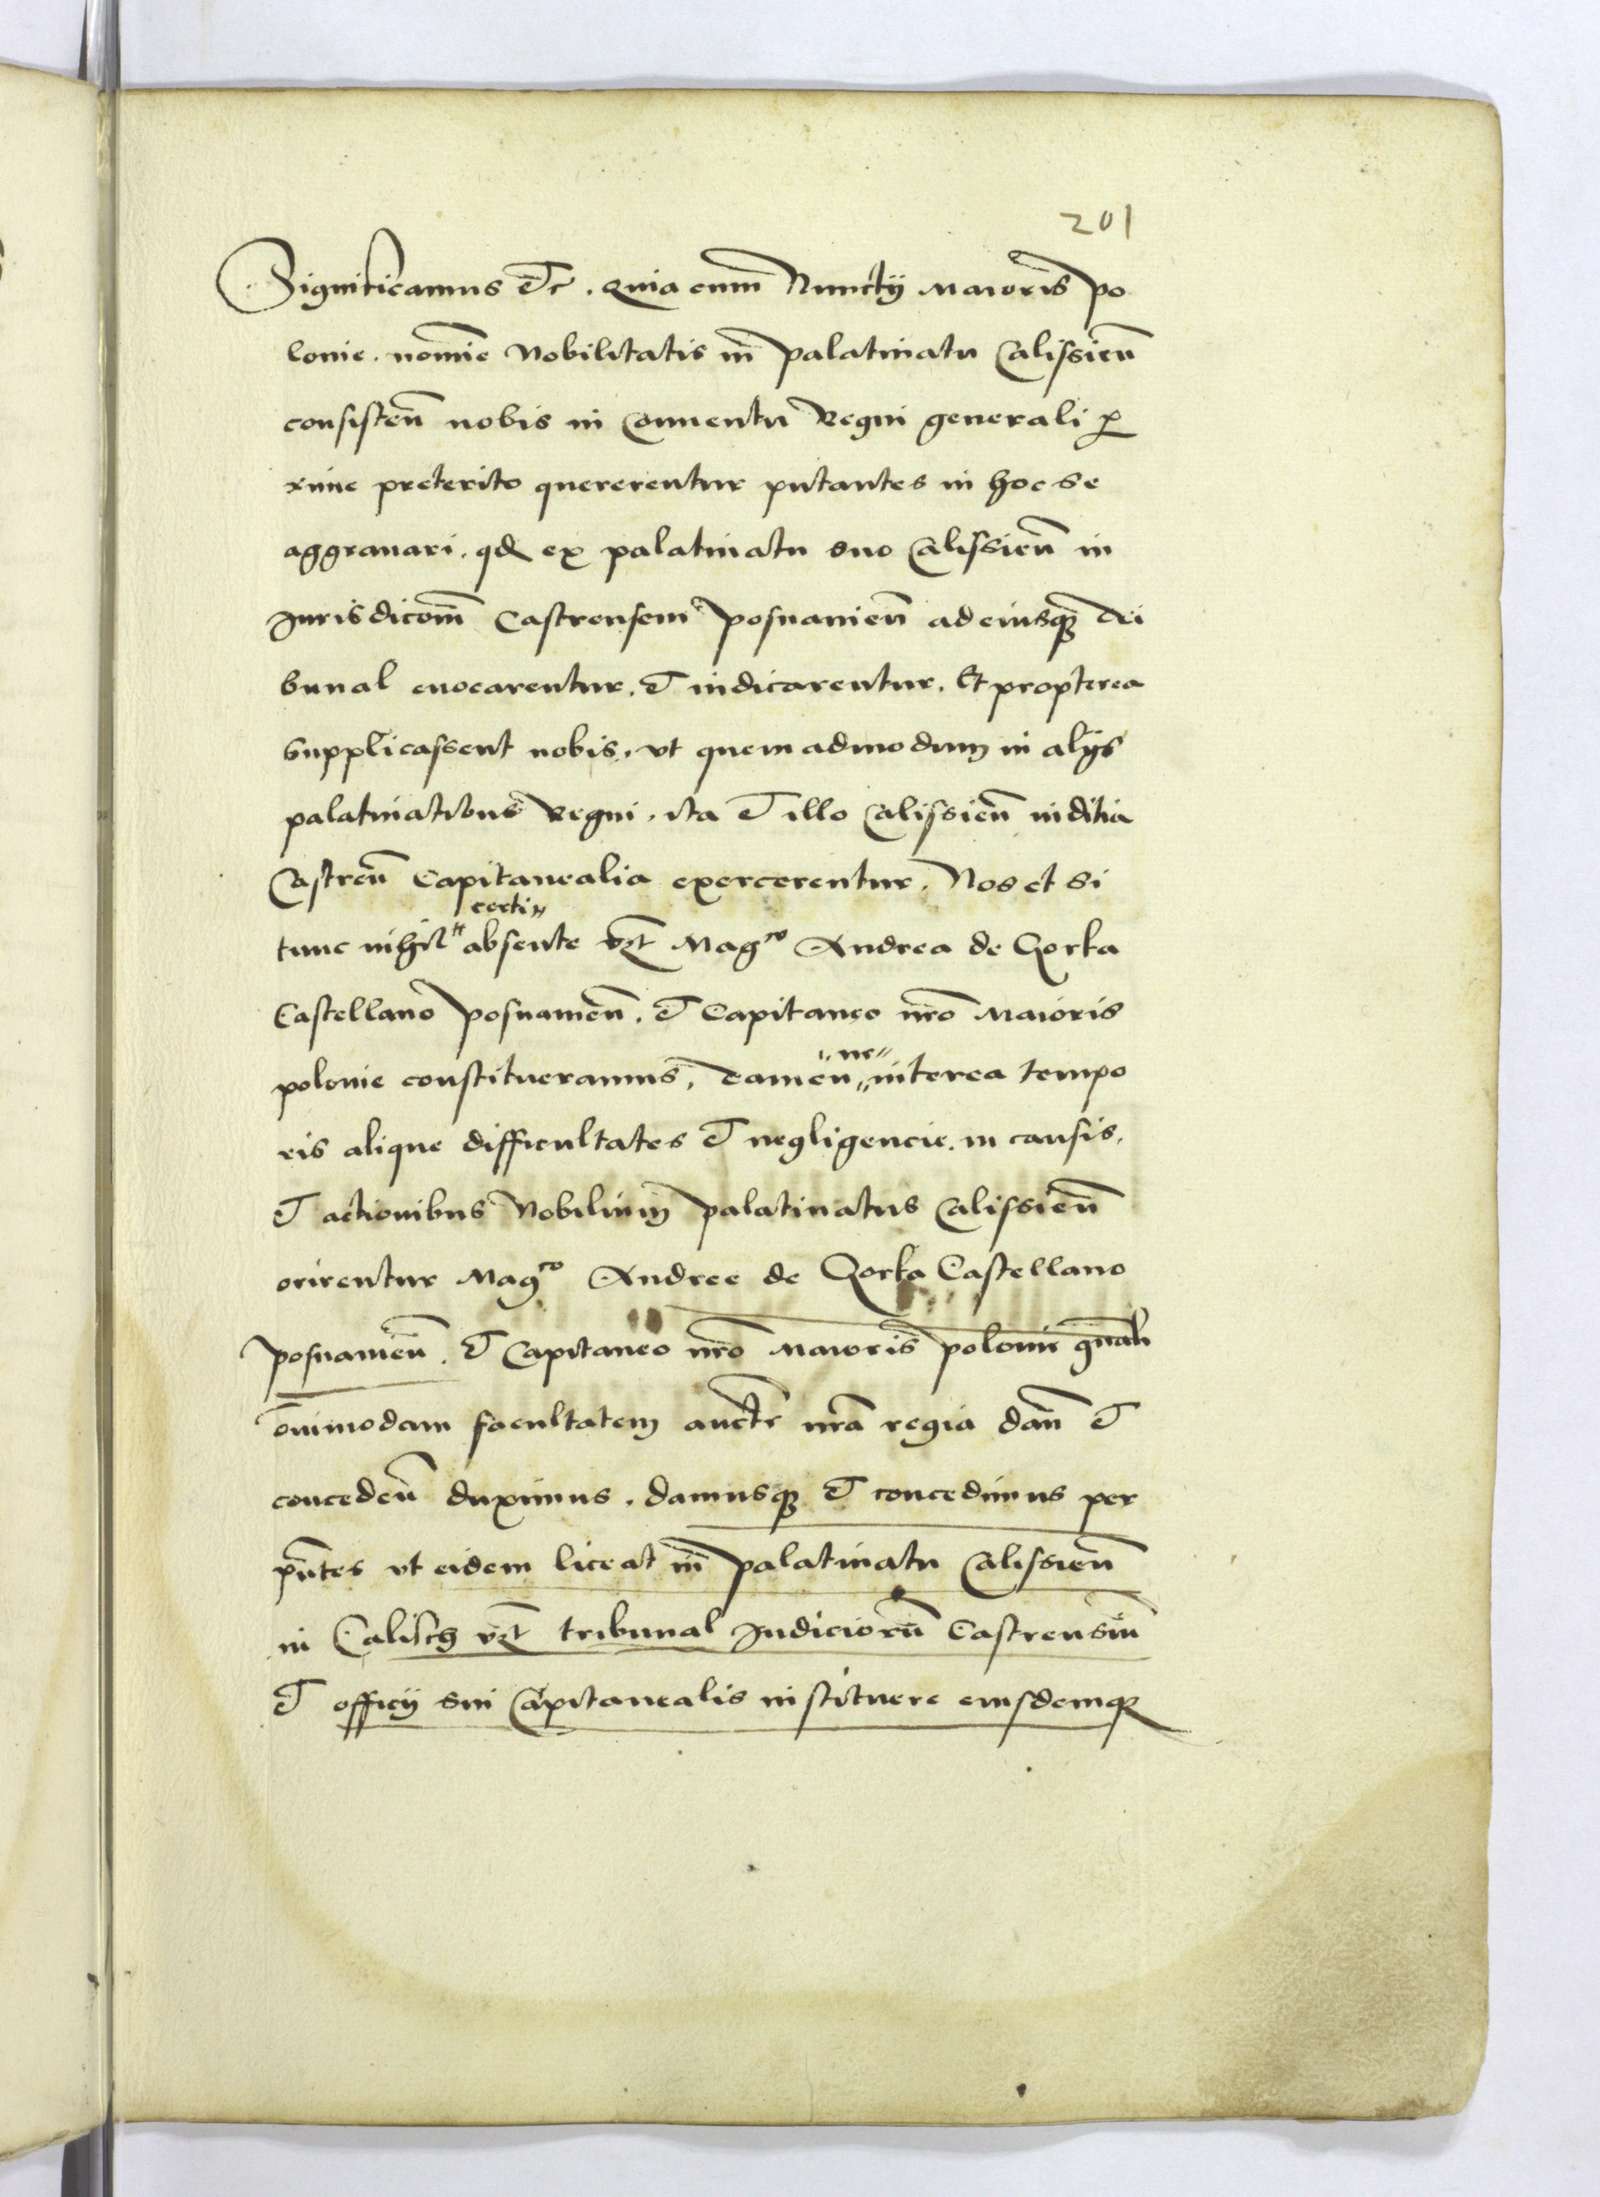 201
Significamus etc. Quia cum Nunctÿ Maioris Po
lonie. nomine Nobilitatis in palatinatu Calissien̄
consisten̄ nobis in Conuentu Regni generali pro
xime preterito quererentur putantes in hoc se
aggrauari. quod ex palatinatu suo Calissien̄ in
Jurisdicom̄ Castrensem Posnanien̄ ad eiusque Tri
bunal euocarentur. et iudicarentur. Et propterea
supplicassent nobis. vt quemadmodum in alÿs
palatinatibus Regni. ita et illo Calissien̄ iuditia
Castren̄ Capitanealia exercerentur. Nos et si
certi
tunc nihil absente vzt Magco Andrea de Gorka
Castellano Posnanien̄. et Capitaneo nr̄o Maioris
polonie constitueramus. Tamen
ne
interea tempo
ris alique difficultates et negligencie. in causis.
et actionibus Nobilium palatinatus Calissien̄
orirentur Magco Andree de Gorka Castellano
Posnanien̄. et Capitaneo nr̄o Maioris Polonie gnāli
ōnimodam facultatem auctē nr̄a regia dan̄ et
conceden̄ duximus. damusque et concedimus per
pn̄tes vt eidem liceat in palatinatu Calissien̄
in Calisch vzt tribunal Judiciorū Castrensiū
et officÿ sui Capitanealis instituere eiusdemque